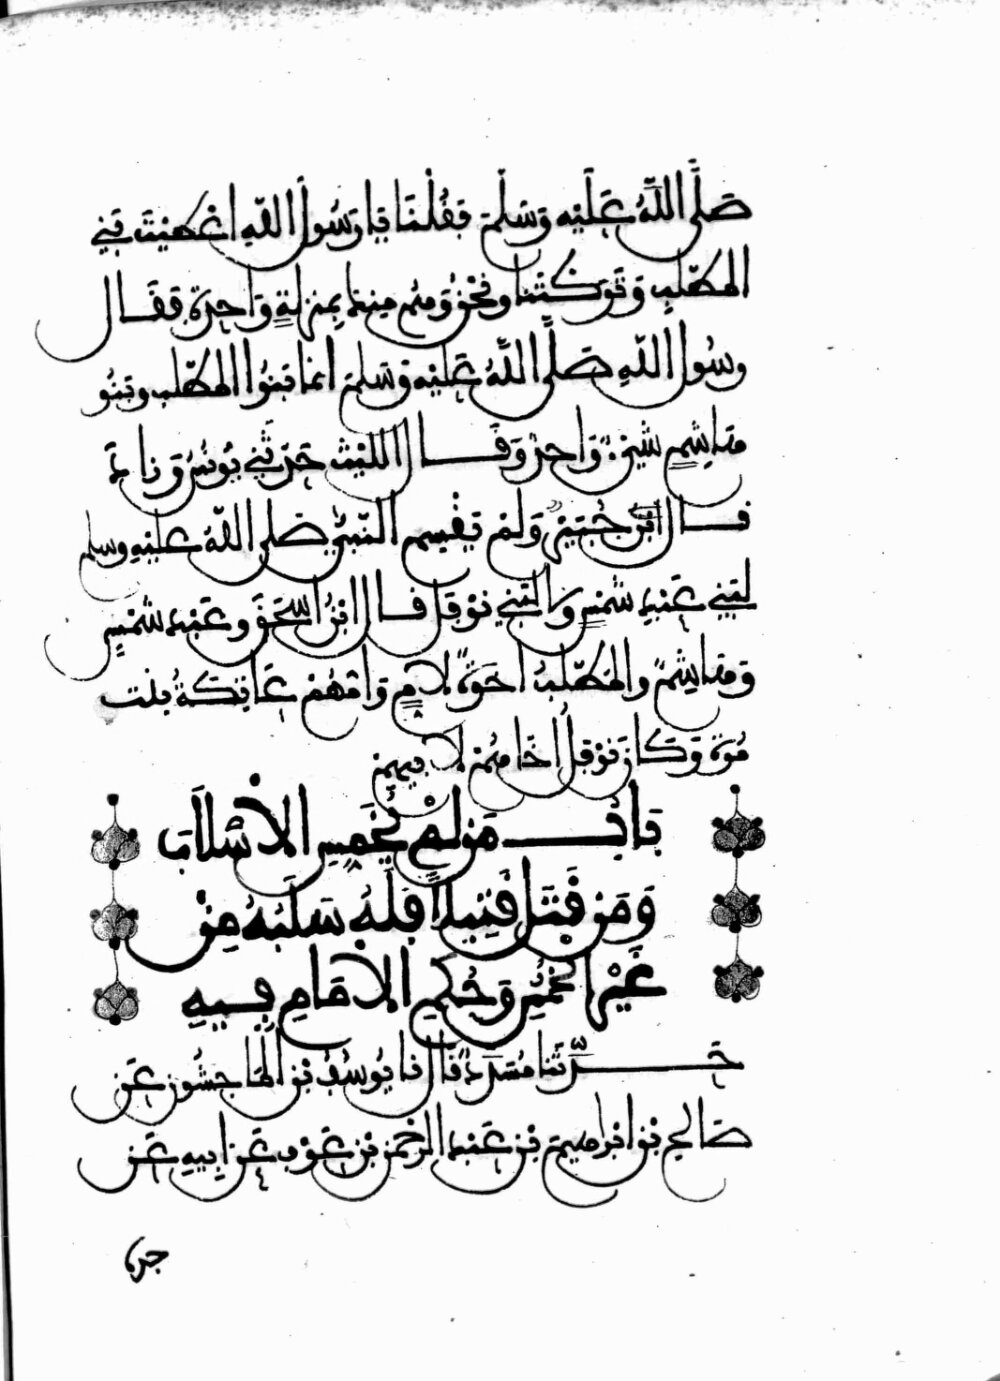 صَلَّى اللَّهُ عَلَيْهِ وَسَلَّمَ فَقُلْنَا يَا رَسُولَ اللَّهِ اعْطَيْتَ بَنِي
المُطَّلِبِ وَتَرَكْتَنَا وَنَحْنُ وَهُمْ مِنْكَ بِمَنْزِلَةٍ وَاحِدَةٍ فَقَالَ
رَسُولُ اللَّهِ صَلَّى اللَّهُ عَلَيْهِ وَسَلَّمَ انما بَنُوا المُطَّلِبِ وَبَنُو
هَاشِمٍ شَيْءٌ وَاحِدٌ وَقَالَ اللَّيْثُ حَدَّثَنِي يُونُسُ وَزَادَ
قَالَ ابْنُ جُبَيْرٍ وَلَمْ يَقْسِمِ النَّبِيُّ صَلَّى اللَّهُ عَلَيْهِ وَسَلَّمَ
لِبَنِي عَبْدِ شَمْسٍ وَلَا لِبَنِي نَوْفَلٍ قَالَ ابْنُ اسْحَقَ وَعَبْدُ شَمْسٍ
وَهَاشِمٌ وَالمُطَّلِبُ اخْوَةٌ لِأُمٍّ وَأُمُّهُمْ عَاتِكَةُ بِنْتُ
مُرَّةَ وَكَانَ نَوْفَلٌ أَخَاهُمْ لِأَبِيهِمْ
بَابُ مَنْ لَمْ يُخَمِّسِ الْأَسْلَابَ
وَمَنْ قَتَلَ قَتِيلًا فَلَهُ سَلَبُهُ مِنْ
غَيْرِ الخُمُسِ وَحُكْمِ الْإِمَامِ فِيهِ
حَدَّثَنَا مُسَدَّدٌ قَالَ نَا يُوسُفُ بْنُ المَاجِشُونِ عَنْ
صَالِحِ بْنِ ابْرَاهِيمَ بْنِ عَبْدِ الرَّحْمَنِ بْنِ عَوْفٍ عَنْ ابِيهِ عَنْ
جده